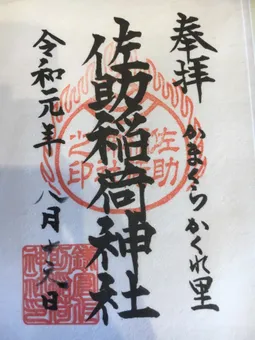 奉拝
かまくらかくれ里
佐助稲荷神社
令和元年 八月 日
佐助
之印